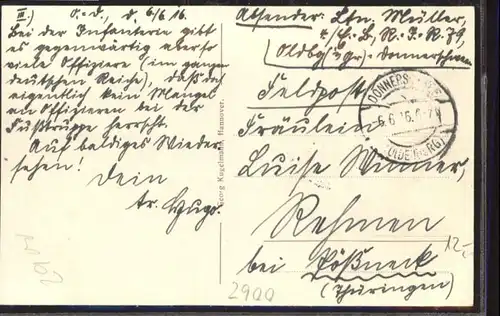 III.) O.-D., d. 6/6 16.
Bei der Infanterie gibt
es gegenwärtig ebenso
viele Offiziere (im ganzen
deutschen Reiche), daß dort
eigentlich kein Mangel
an Offizieren bei der
Fußtruppe herrscht.
Auf baldiges Wieder-
sehen!
Dein
tr. Hugo.
Georg Kugelmann, Hannover.
Absender: Ltn. Müller,
R.-I.-R. 79,
Oldbg i/Gr.-Donnerschwee
Feldpost.
6.6.16.
(OLDENBERG)
Fräulein
Luise Winner,
Rehmen
bei Pößneck
(Thüringen)
12,-
2900